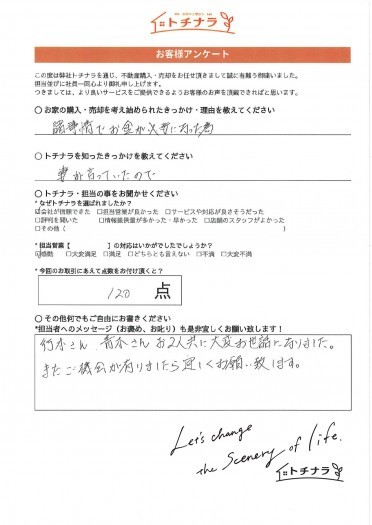 トチナラ
お客様アンケート
この度は弊社トチナラを通じ、不動産購入・売却をお任せ頂きまして誠に有難う御座いました。
担当並びに社員一同心より御礼申し上げます。
つきましては、より良いサービスをご提供できるようお客様のお声を頂戴できればと思います。
○ お家の購入・売却を考え始められたきっかけ・理由を教えてください
諸事情でお金が必要になった為
○ トチナラを知ったきっかけを教えてください
車が走っていたので
○ トチナラ・担当の事をお聞かせください
* なぜトチナラを選ばれましたか?
☑会社が信頼できた □担当営業が良かった □サービスや対応が良さそうだった
□評判を聞いた □情報提供量が多かった・早かった □店舗のスタッフがよかった
□その他( )
* 担当営業【 】の対応はいかがでしたでしょうか?
☑感動 □大変満足 □満足 □どちらとも言えない □不満 □大変不満
* 今回のお取引にあえて点数をお付け頂くと?
120 点
○ その他何でもご自由にお書きください
*担当者へのメッセージ(お褒め、お叱り)も是非宜しくお願い致します!
青木さんお2人共に大変お世話になりました。
またご機会が有りましたら宜しくお願い致します。
Let's change
the Scenery of life.
トチナラ